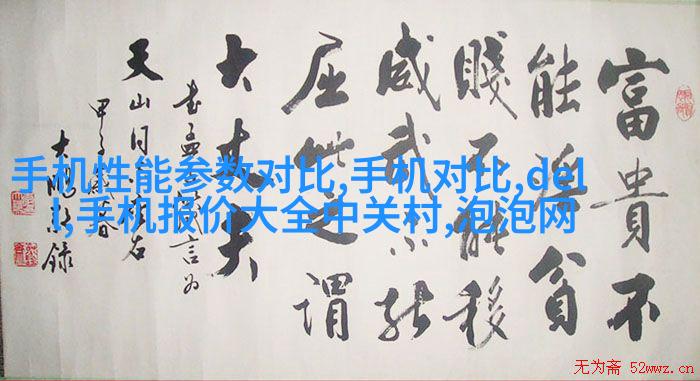 富貴不
能淫貧
賤不能移
威武不能
屈此之謂
大丈夫
手机性能参数对比,手机对比,del
l,手机报价大全中关村,泡泡网
天山同
甲子
大鹏敬錄
无为斋 52wwz.cn